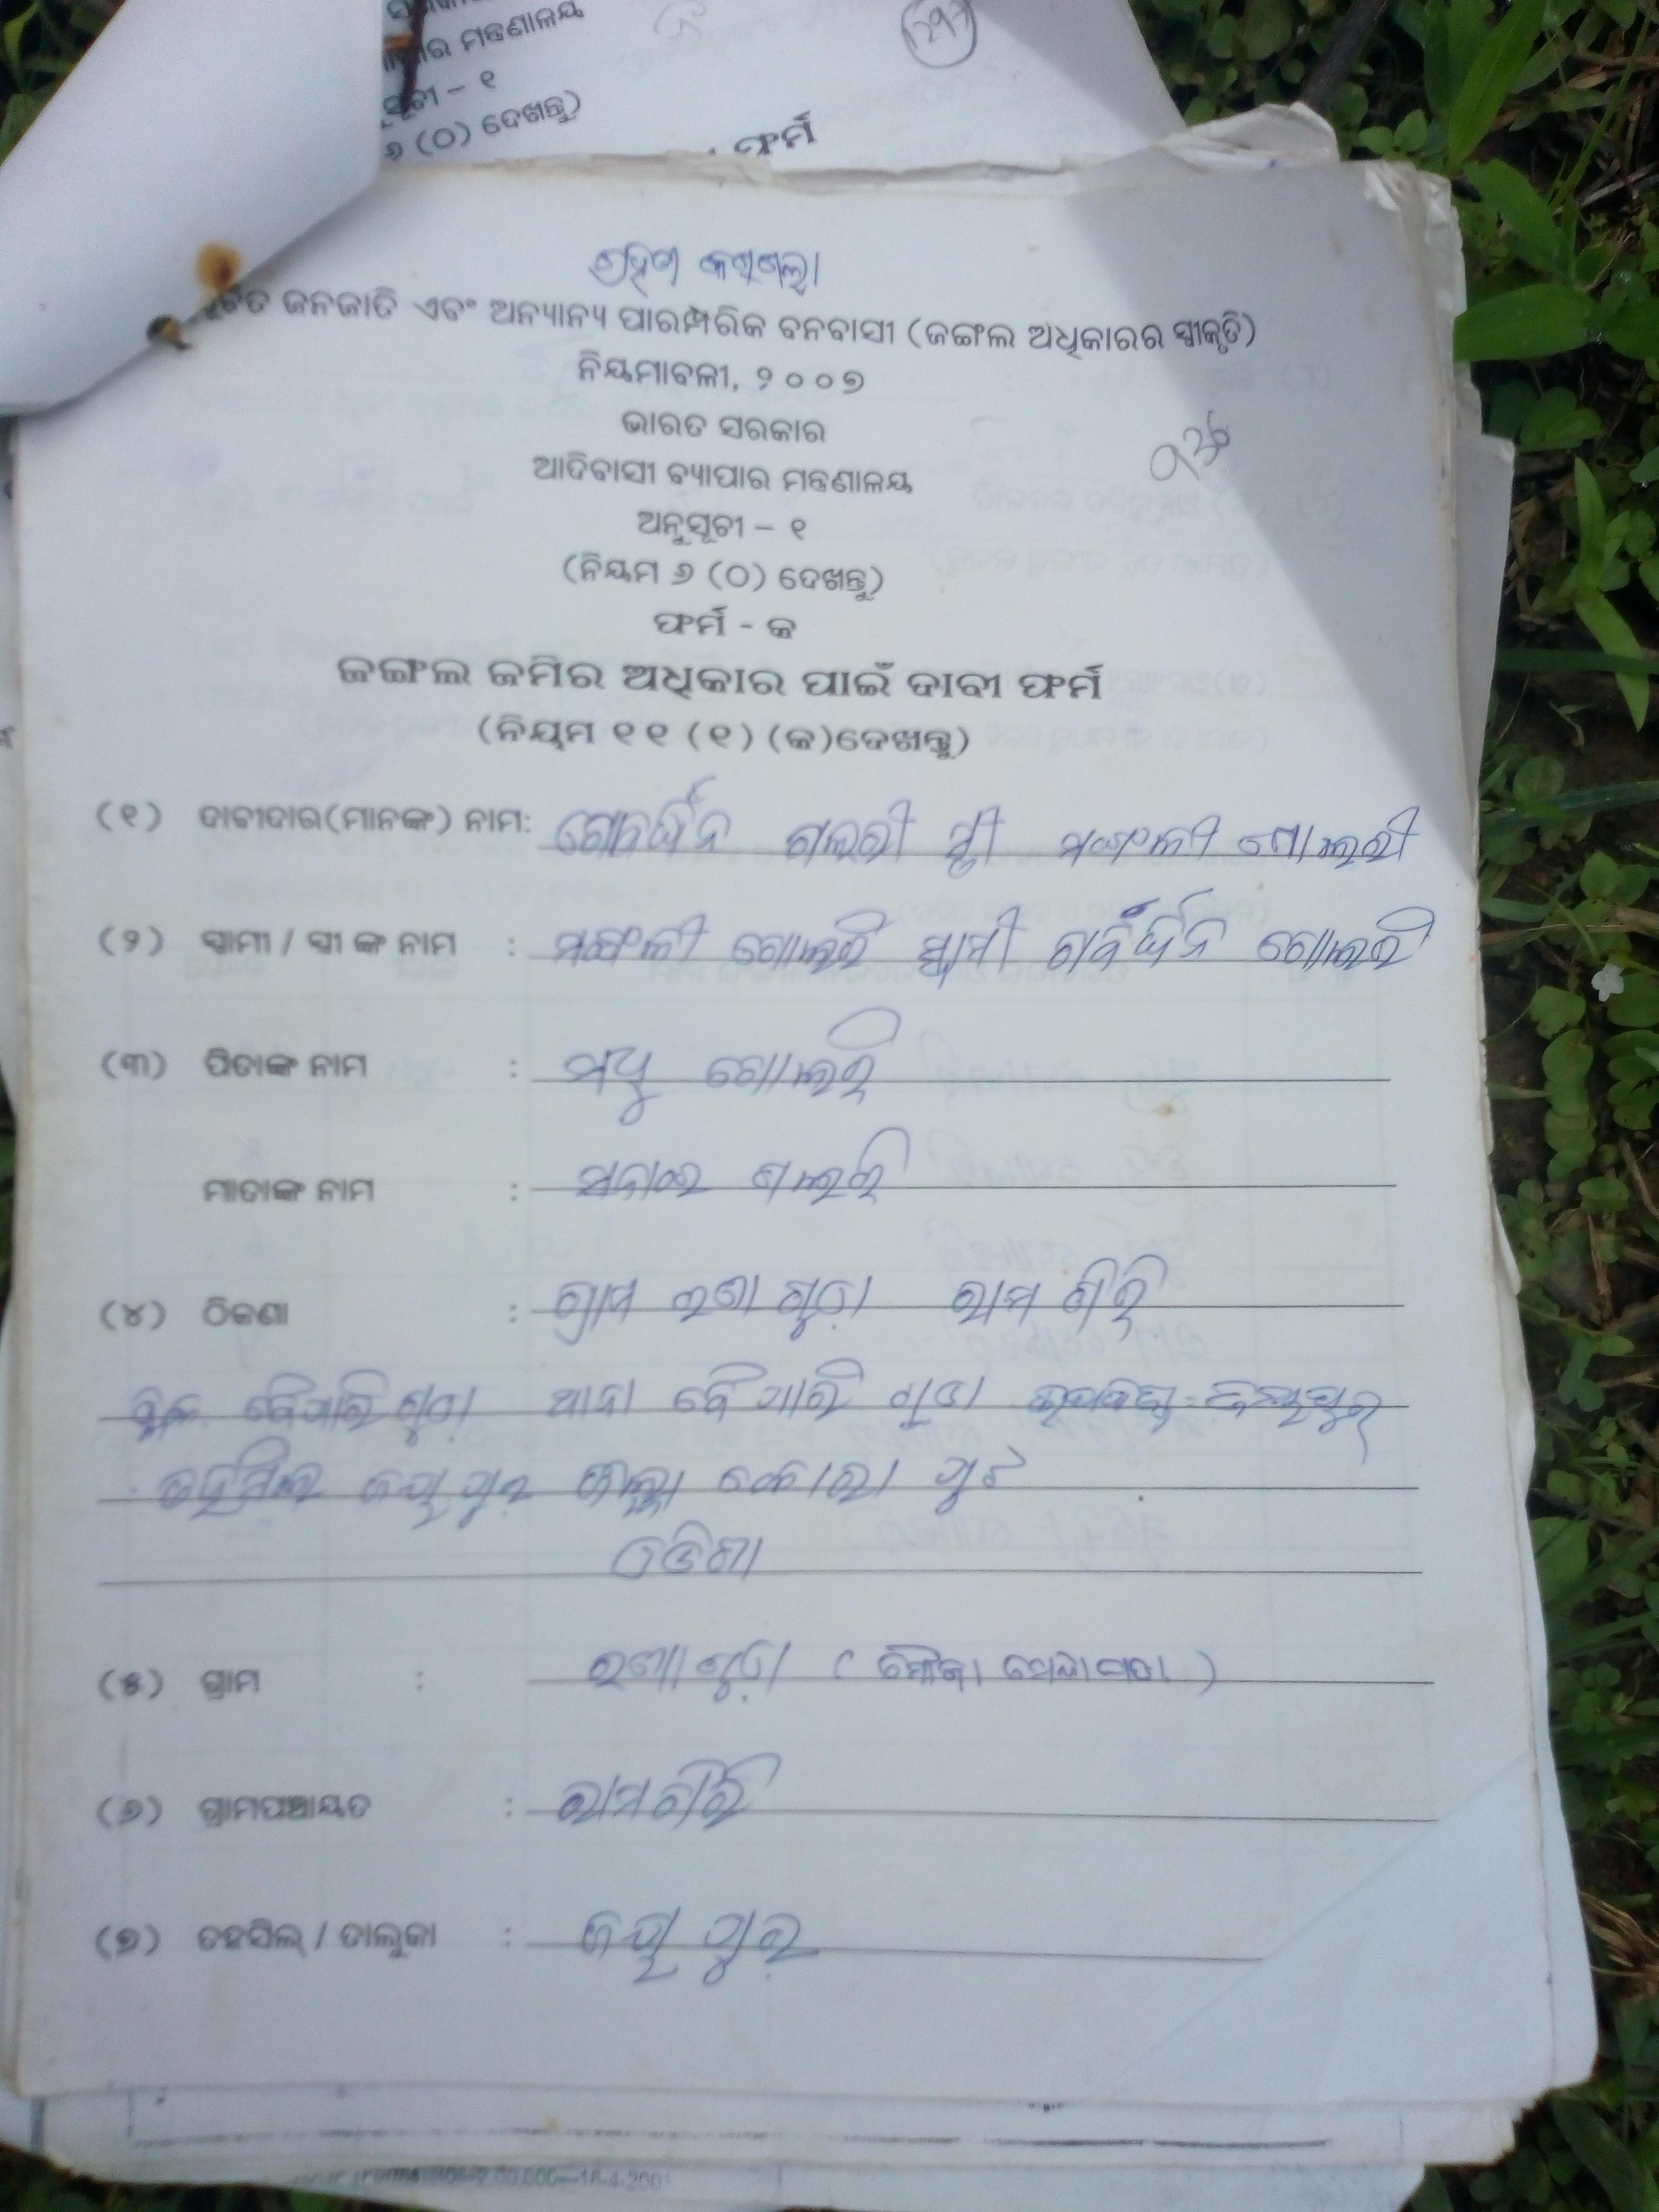 ମନ୍ତ୍ରଣାଳୟ
ସୂଚୀ – ୧
୬ (୦) ଦେଖନ୍ତୁ)
ଫର୍ମ
ଜନଜାତି ଏବଂ ଅନ୍ୟାନ୍ୟ ପାରମ୍ପରିକ ବନବାସୀ (ଜଙ୍ଗଲ ଅଧିକାରର ସ୍ୱୀକୃତି)
ନିୟମାବଳୀ, ୨୦୦୭
ଭାରତ ସରକାର
ଆଦିବାସୀ ବ୍ୟାପାର ମନ୍ତ୍ରଣାଳୟ
ଅନୁସୂଚୀ – ୧
(ନିୟମ ୬ (୦) ଦେଖନ୍ତୁ)
ଫର୍ମ - କ
ଜଙ୍ଗଲ ଜମିର ଅଧିକାର ପାଇଁ ଦାବୀ ଫର୍ମ
(ନିୟମ ୧୧ (୧) (କ)ଦେଖନ୍ତୁ)
(୧) ଦାବୀଦାର(ମାନଙ୍କ) ନାମ: ଗୋବର୍ଦ୍ଧନ ଗଲରୀ ସ୍ତ୍ରୀ ମଙ୍ଗଳୀ ଗୋଲରୀ
(୨) ସ୍ୱାମୀ / ସ୍ତ୍ରୀ ଙ୍କ ନାମ : ମଙ୍ଗଳୀ ଗୋଲରି ସ୍ୱାମୀ ଗୋଲରି
(୩) ପିତାଙ୍କ ନାମ : ମଧୁ ଗୋଲରି
ମାତାଙ୍କ ନାମ : ଗଲରି
(୪) ଠିକଣା : ଗ୍ରାମ ରଣା ଗୁଡ଼ା ରାମ ଗିରି
ବ୍ଲକ ବୈପାରିଗୁଡ଼ା ଥାନା ବୈପାରି ଗୁଡା
ତହସିଲ ଜୟପୁର ଜିଲ୍ଲା କୋରାପୁଟ
ଓଡିଶା
(୫) ଗ୍ରାମ : ରଣା ଗୁଡ଼ା (ମୌଜା
(୬) ଗ୍ରାମପଞ୍ଚାୟତ : ରାମଗିରି
(୭) ତହସିଲ୍ / ତାଲୁକା : ଜୟପୁର